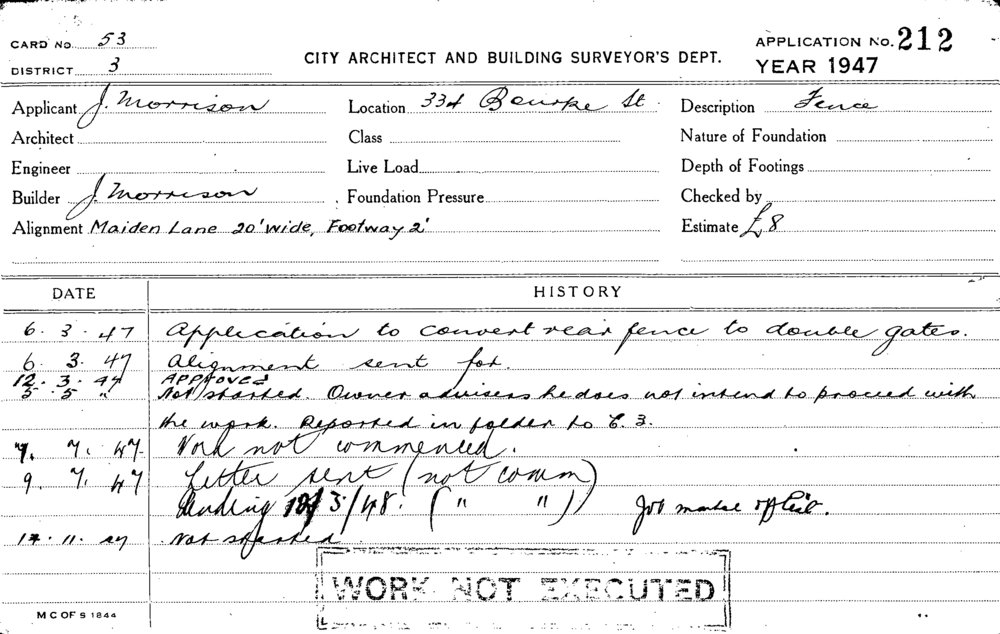 CARD No. 53
DISTRICT 3
CITY ARCHITECT AND BUILDING SURVEYOR'S DEPT.
APPLICATION No. 212
YEAR 1947
Applicant J. Morrison
Location 334 Bourke St.
Description Fence
Architect
Class
Nature of Foundation
Engineer
Live Load
Depth of Footings
Builder J. Morrison
Foundation Pressure
Checked by
Alignment Maiden Lane 20' wide, Footway 2'
Estimate £8
DATE HISTORY
6. 3. 47 Application to convert rear fence to double gates.
6. 3. 47 Alignment sent for.
12. 3. 47 APPROVED
5. 5 " Not started. Owner advisers he does not intend to proceed with
the work. Reported in folder to C. 3.
7. 7. 47 Work not commenced.
9. 7. 47 Letter sent (not comm)
Pending 3/48. ( " " ) Job
11. Not started
WORK NOT EXECUTED
M C OF S 1844